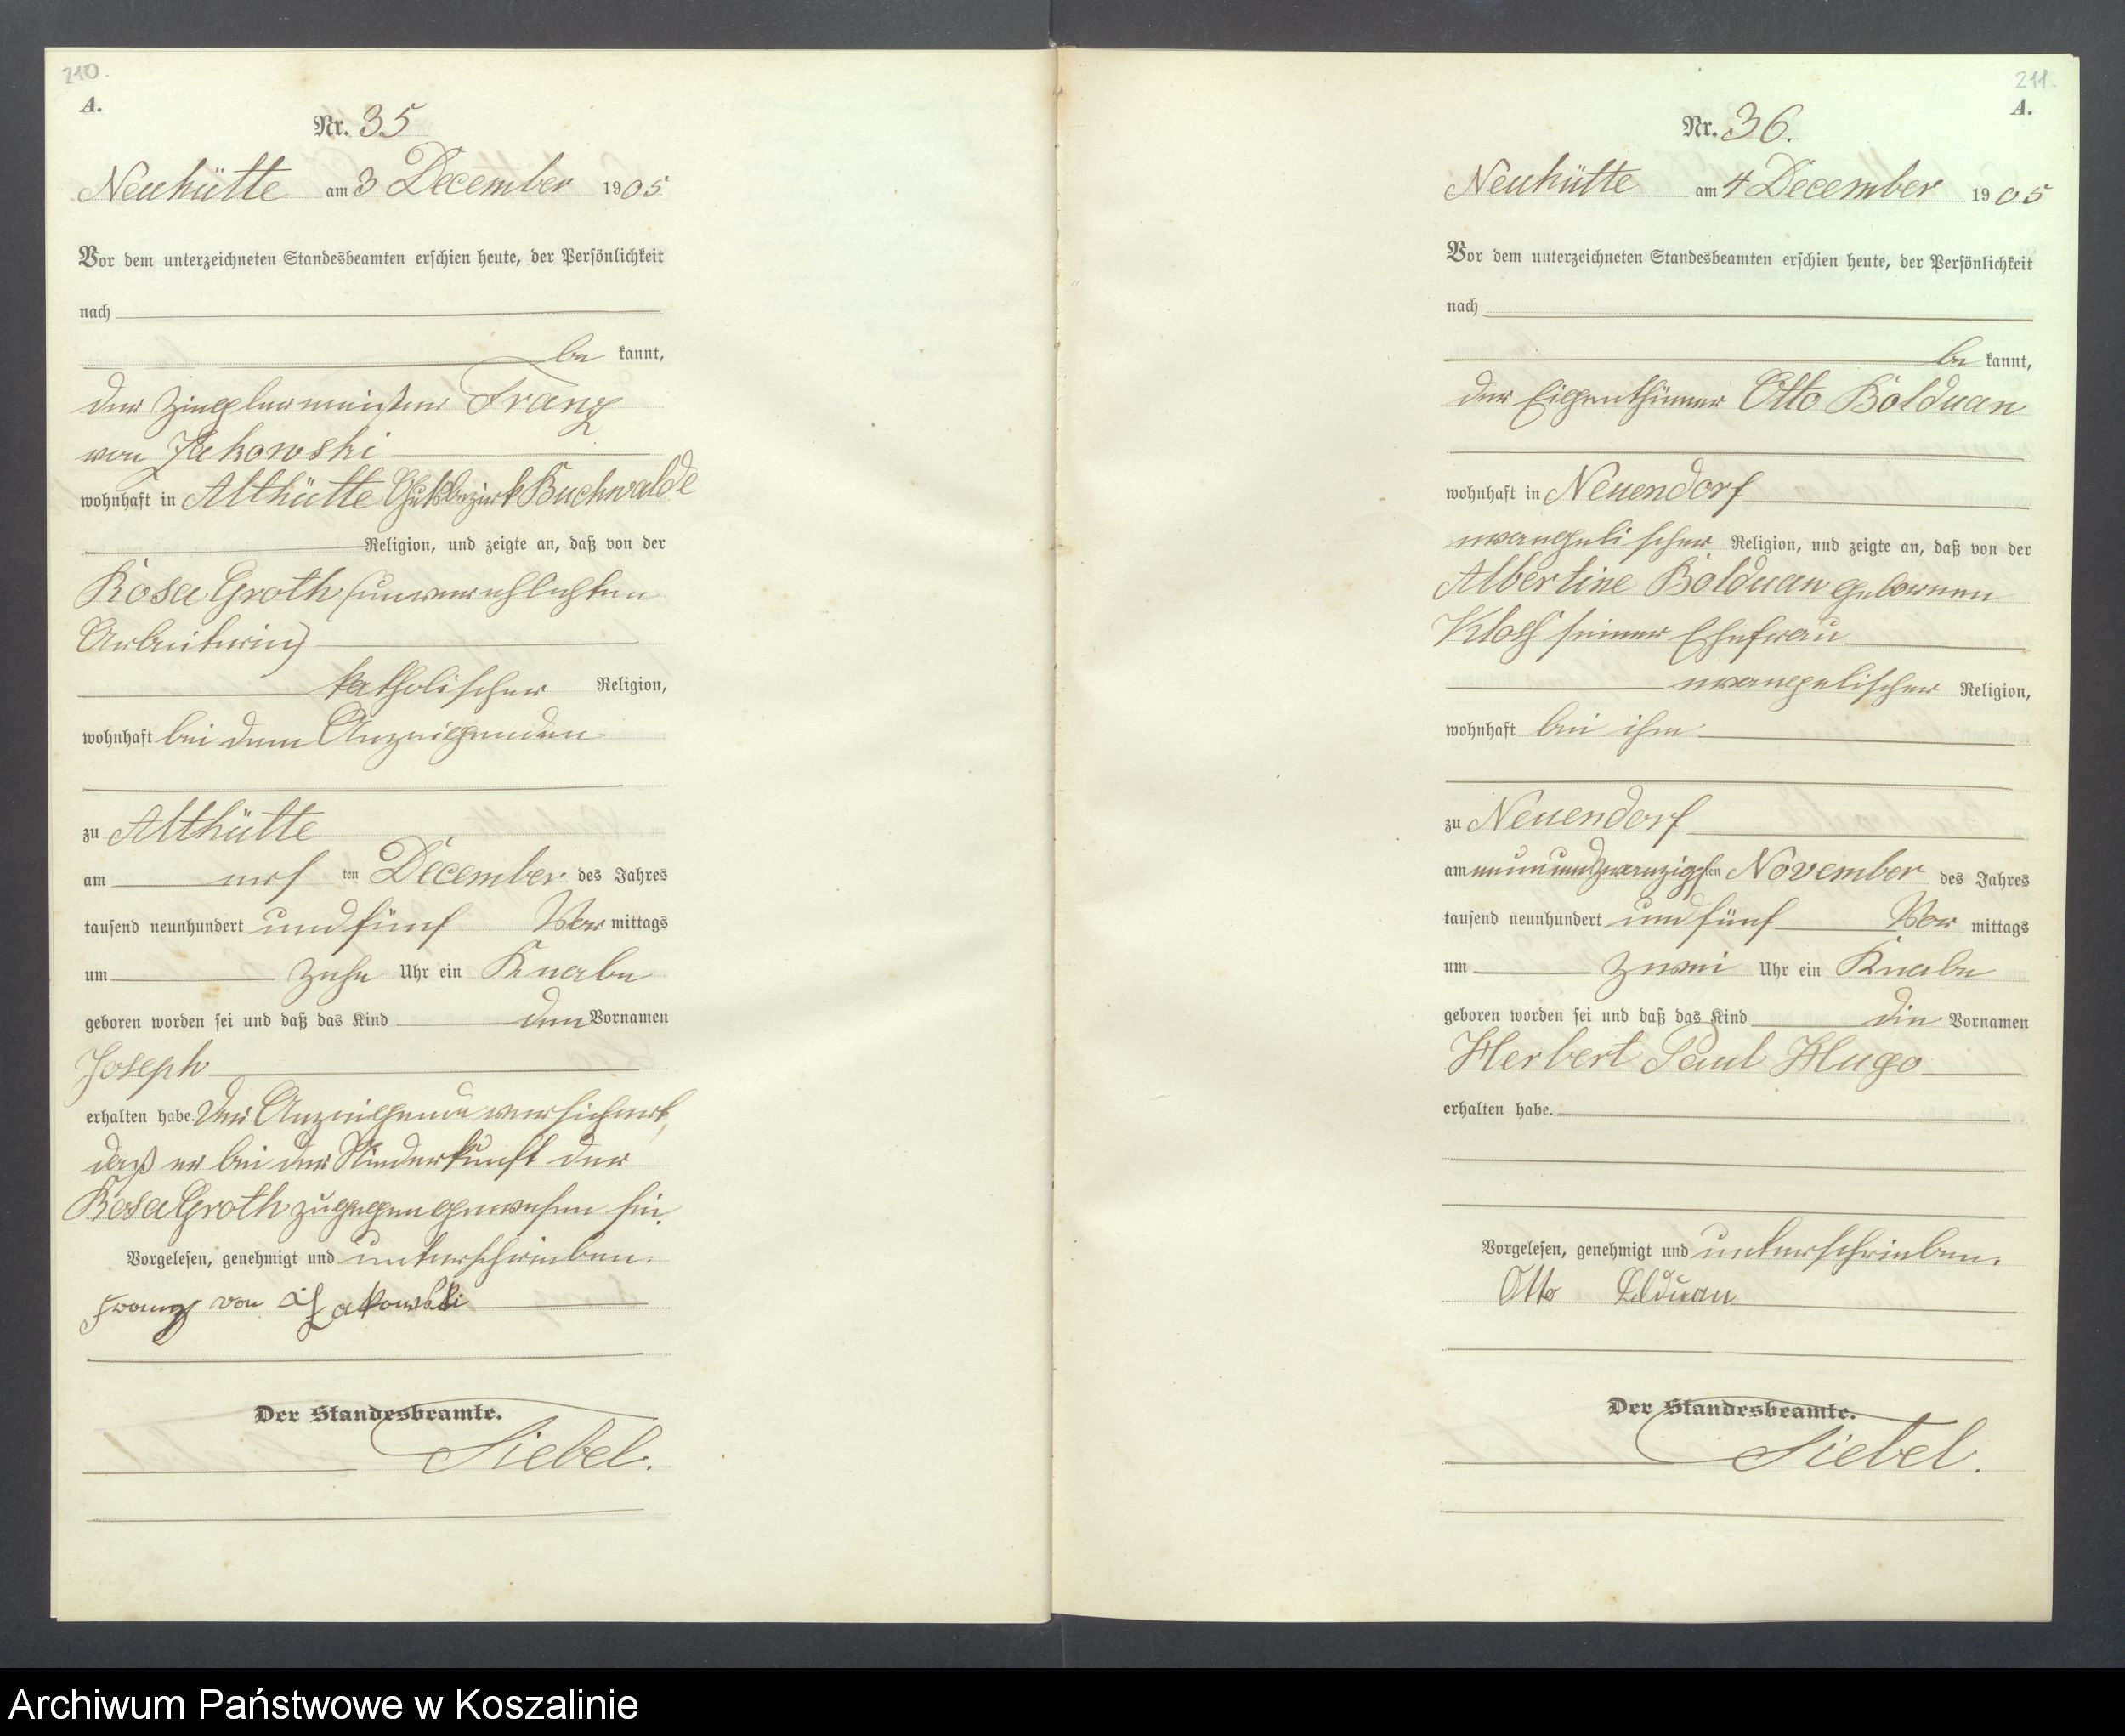 210.
A.
Nr. 35
Neuhütte am 3 December 1905
Vor dem unterzeichneten Standesbeamten erschien heute, der Persönlichkeit
nach
be kannt,
der Zieglermeister Franz
von Jakowski
wohnhaft in Althütte Gutsbezirk Buchwalde
Religion, und zeigte an, daß von der
Rosa Groth (unverehlichten
Arbeiterin)
katholischer Religion,
wohnhaft bei dem Anzeigenden
zu Althütte
am ten December des Jahres
tausend neunhundert und fünf Vor mittags
um zehn Uhr ein Knabe
geboren worden sei und daß das Kind den Vornamen
Joseph
erhalten habe. Der Anzeigende versichert,
daß er bei der Niederkunft der
Rosa Groth zugegen gewesen sei.
Vorgelesen, genehmigt und unterschrieben.
Franz von
Der Standesbeamte.
Siebel.
211.
A.
Nr. 36.
Neuhütte am 4 December 1905
Vor dem unterzeichneten Standesbeamten erschien heute, der Persönlichkeit
nach
be kannt,
der Eigenthümer Otto Bolduan
wohnhaft in Neuendorf
evangelischer Religion, und zeigte an, daß von der
Albertine Bolduan geborenen
seiner Ehefrau
evangelischer Religion,
wohnhaft bei ihm
zu Neuendorf
am neunundzwanzigsten November des Jahres
tausend neunhundert und fünf Vor mittags
um zwei Uhr ein Knabe
geboren worden sei und daß das Kind die Vornamen
Herbert Paul Hugo
erhalten habe.
Vorgelesen, genehmigt und unterschrieben.
Otto Bolduan
Der Standesbeamte.
Siebel.
Archiwum Państwowe w Koszalinie